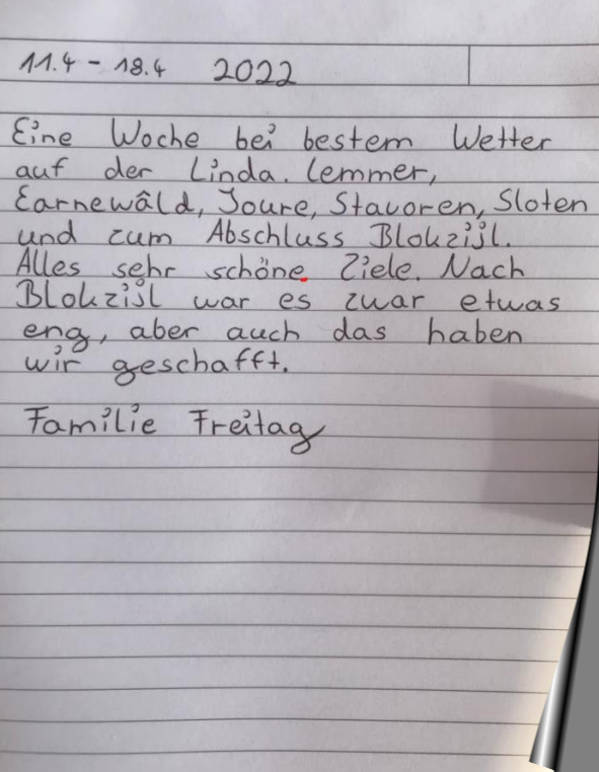 11.4 - 18.4 2022
Eine Woche bei bestem Wetter
auf der Linda. Lemmer,
Earnewâld, Joure, Stavoren, Sloten
und zum Abschluss Blokzijl.
Alles sehr schöne Ziele. Nach
Blokzijl war es zwar etwas
eng, aber auch das haben
wir geschafft.
Familie Freitag